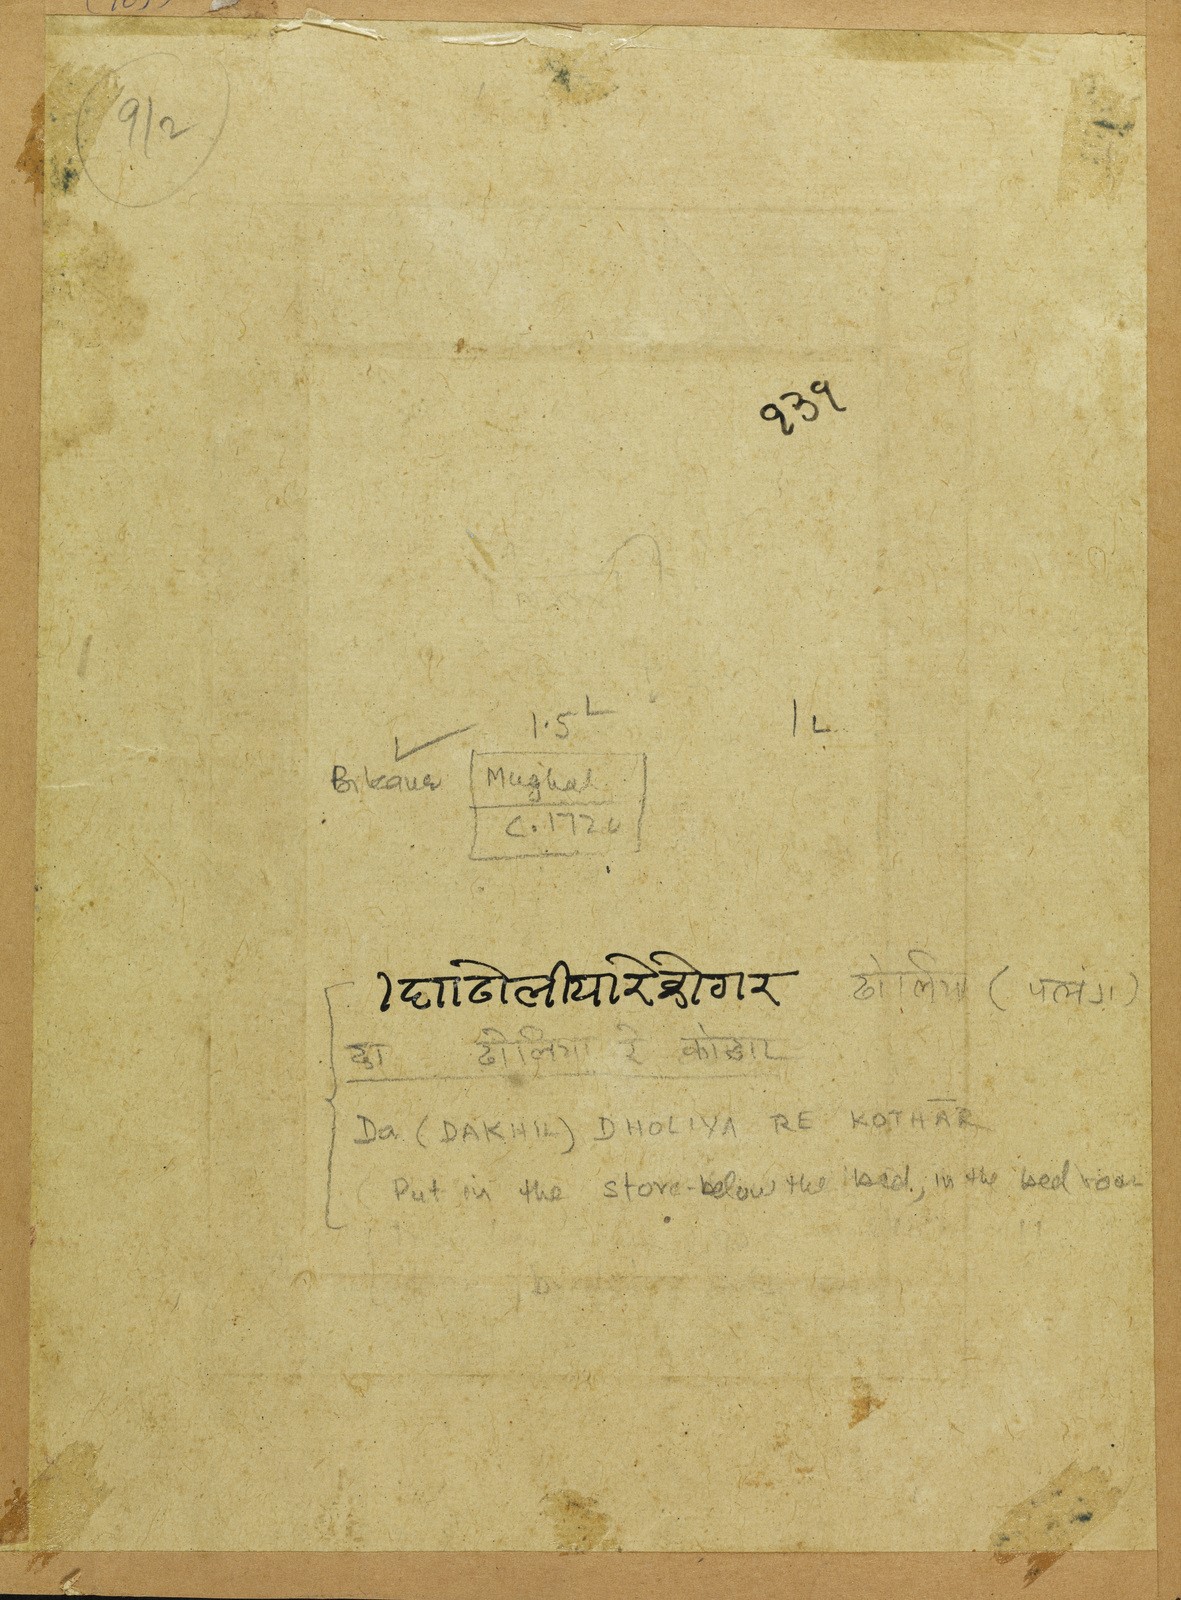 9/2
१३१
1.5 L
1 L
Bikaner Mughal
C. 1720
ढोलिया (पलंग)
दा ढोलिया रे कोठार
Da (DAKHIL) DHOLIYA RE KOTHĀR
Put in the store-below the bed, in the bed room